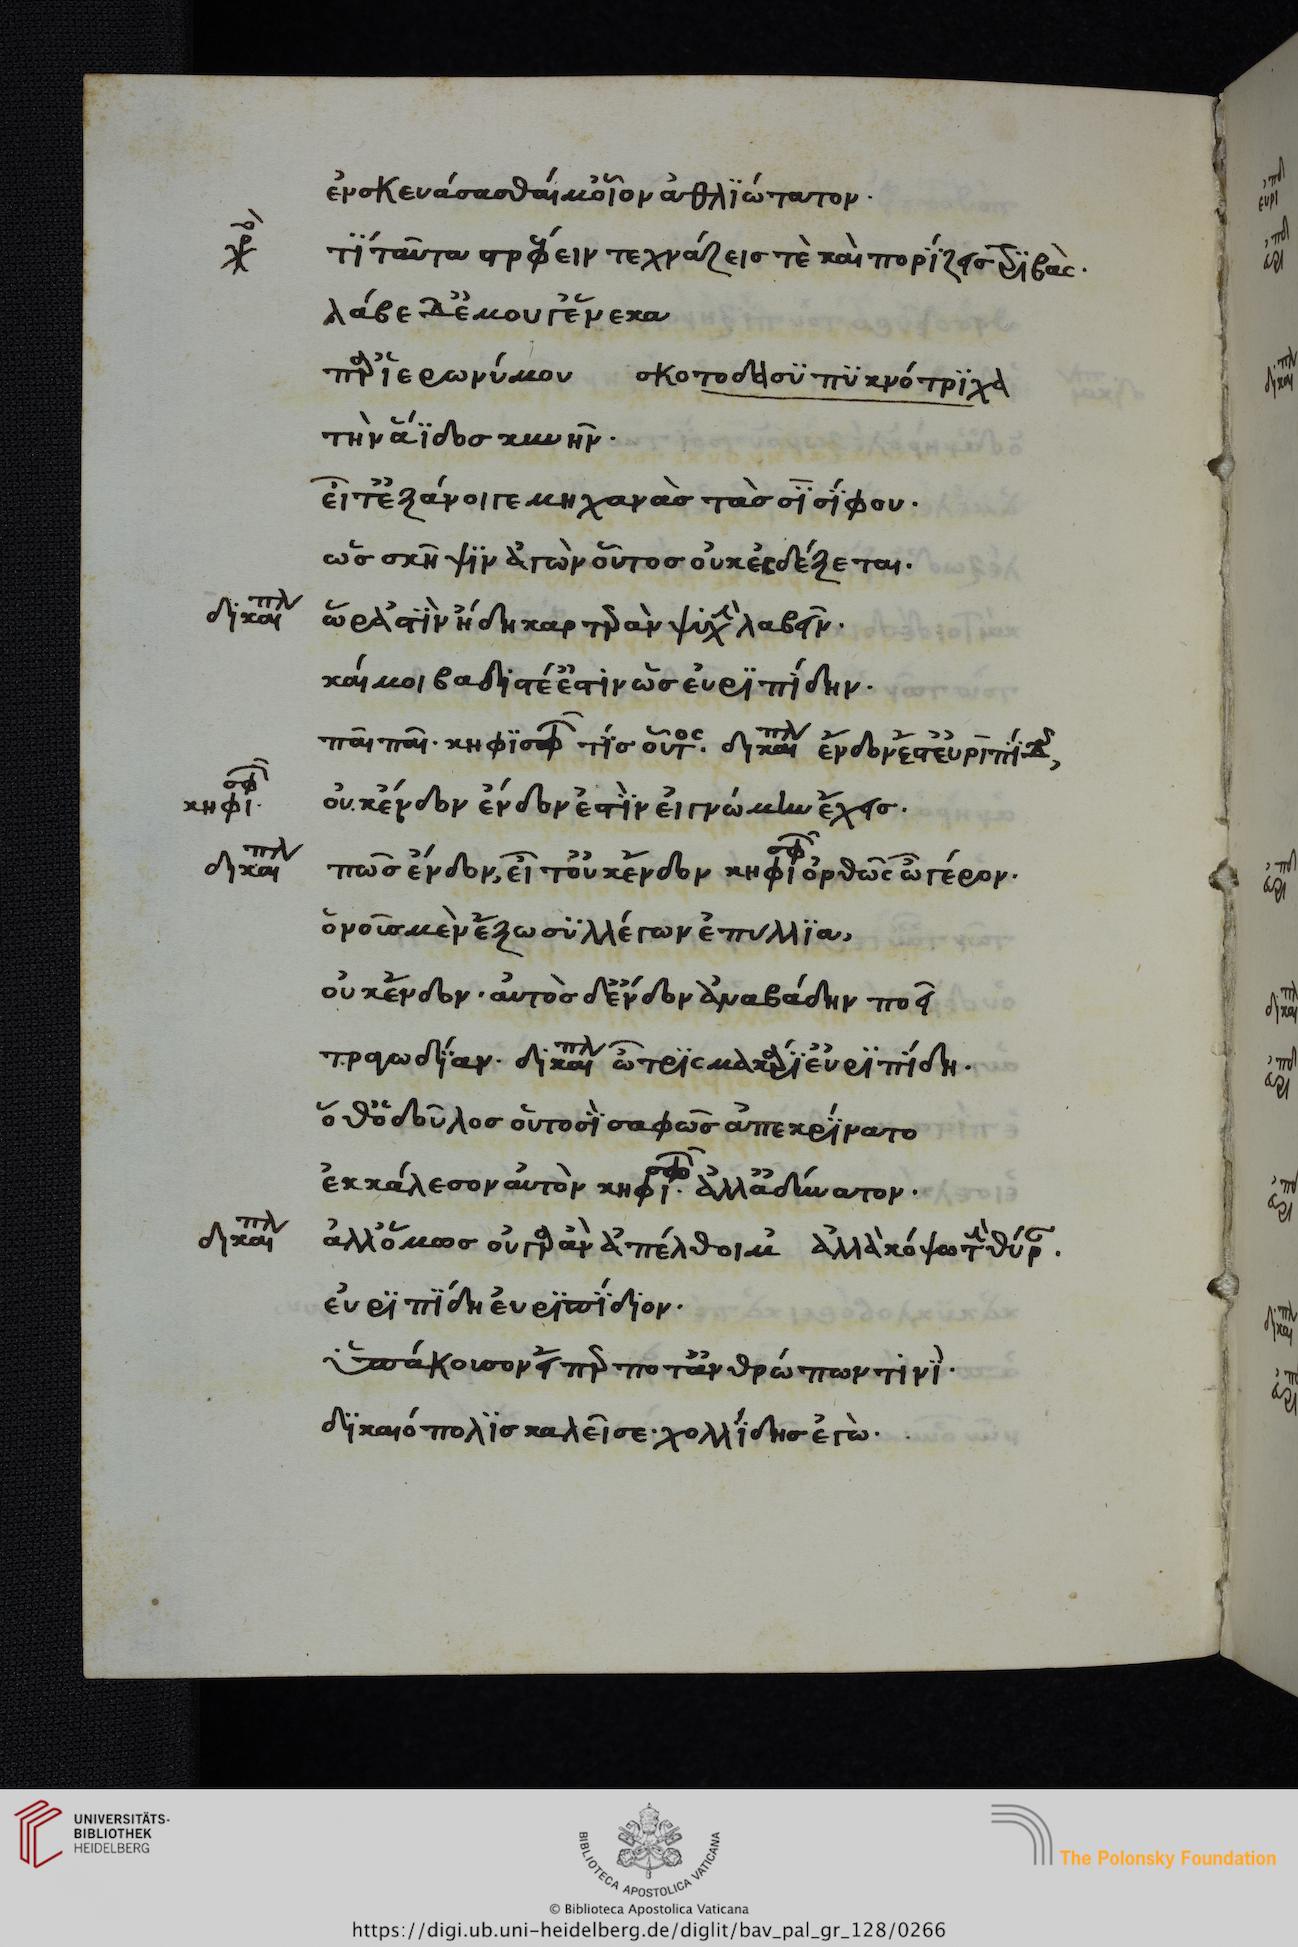 ἐνσκευάσασθαί μ' οἷον ἀθλϊώτατον.
χορ τΐ ταῦτα στρέφειν τεχνάζεις τὲ καὶ πορΐζεις τρϊβὰς.
λάβε δ' ἐμοῦ γ' ἕνεκα
παρ' ϊερωνύμου σκοτοδασϋπϋκνότρϊχα
τὴν ἄϊδος κυνῆν.
εἶτ' ἐξάνοιγε μηχανὰς τὰς σϊσΐφου.
ὡς σκῆψϊν ἁγὼν οὗτος οὐκ ἐσδέξεται.
δικαιπλ ὥρα 'στὶν ἤδη καρτερὰν ψυχὴν λαβεῖν.
καί μοι βαδιστέ' ἐστὶν ὡς εὐρϊπίδην.
παῖ παῖ. κηφϊσοφ τίς οὗτος. δικαιπλ ἔνδον ἔστ' εὐριπίδ,
κηφισφ. οὐκ ἔνδον ἔνδον ἐστὶν εἰ γνώμην ἔχεις.
δικαιπλ πῶς ἔνδον, εἶτ' οὐκ ἔνδον κηφισφ ὀρθῶς ὦ γέρον.
ὁ νοῦς μὲν ἔξω συλλέγων ἐπυλλϊα,
οὐκ ἔνδον. αὐτὸς δ' ἔνδον ἀναβάδην ποεῖ
τραγωδΐαν. δικαιπλ ὦ τρὶς μακάρϊ' εὐρϊπίδη.
ὅθ' ὁ δοῦλος οὑτοσὶ σαφῶς ἀπεκρΐνατο
ἐκκάλεσον αὐτὸν κηφισφ. ἀλλ' ἀδύνατον.
δικαιπλ ἀλλ' ὅμως οὐ γὰρ ἂν ἀπέλθοιμ' ἀλλὰ κόψω τὴν θύραν.
εὐρϊπΐδη εὐρϊπΐδϊον.
ὑπάκουσον εἴπερ ποτ' ἀνθρώπων τινΐ.
δϊκαιόπολϊς καλεῖ σε. χολλΐδης ἐγὼ.
UNIVERSITÄTS-
BIBLIOTHEK
HEIDELBERG
BIBLIOTECA APOSTOLICA VATICANA
The Polonsky Foundation
© Biblioteca Apostolica Vaticana
https://digi.ub.uni-heidelberg.de/diglit/bav_pal_gr_128/0266